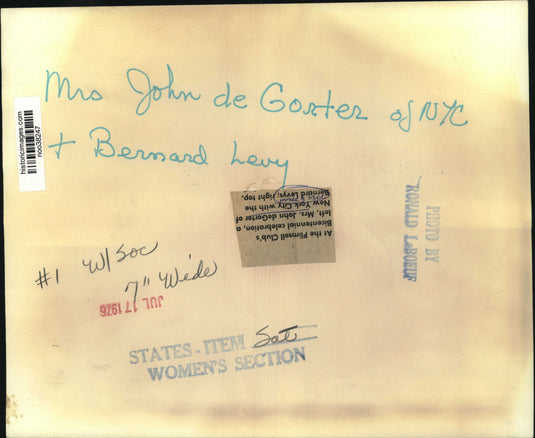 Mrs John de Gorter of NYC
+ Bernard Levy
historicimages.com
noo38247
At the Plimsoll Club's
Bicentennial celebration, a
left, Mrs. John deGorter of
New York City with the
Bernard Levys; right top,
PHOTO BY
RONALD LeBOEUF
#1 W/Soc
7" Wide
JUL 17 1976
STATES-ITEM Sat
WOMEN'S SECTION